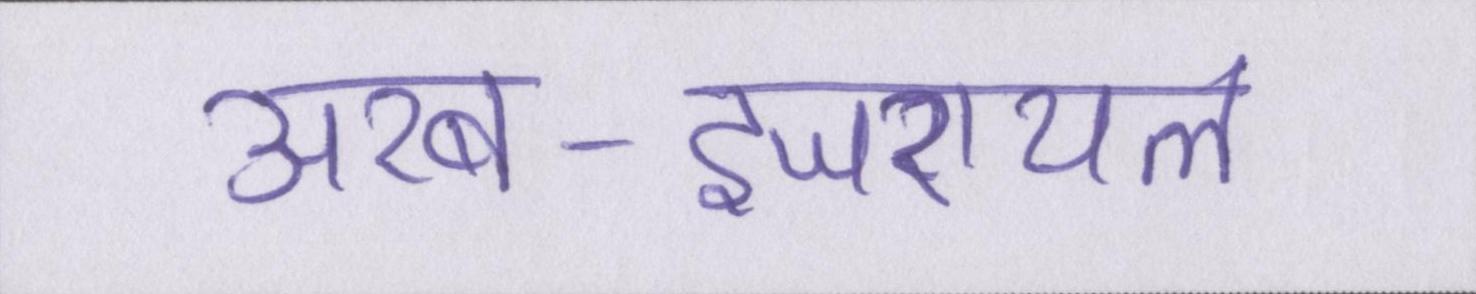 अरब-इजरायल